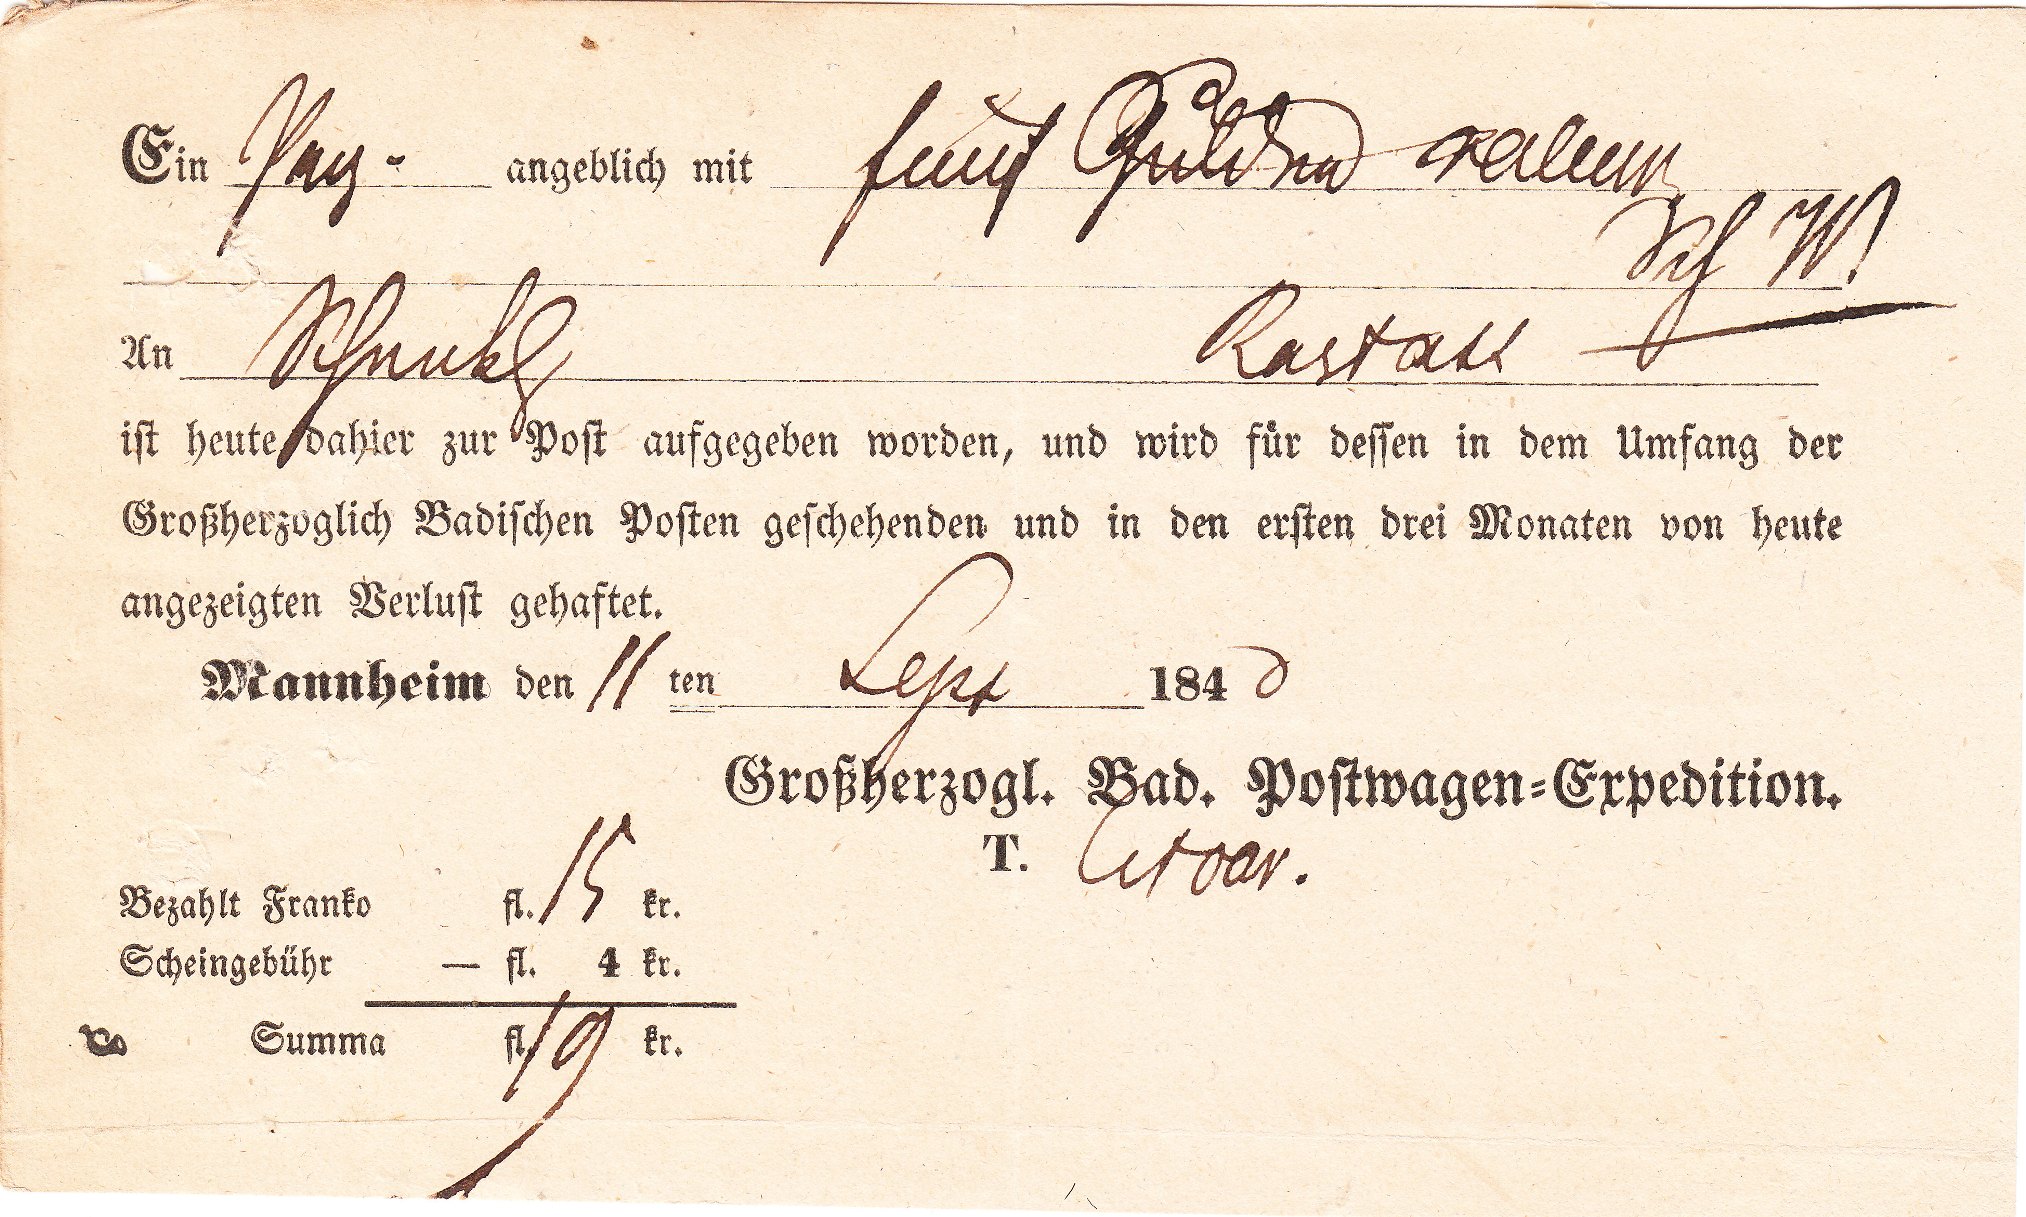 Ein Paq- angeblich mit fünf Gulden
Sch W.
An Rastatt
ist heute dahier zur Post aufgegeben worden, und wird für dessen in dem Umfang der
Großherzoglich Badischen Posten geschehenden und in den ersten drei Monaten von heute
angezeigten Verlust gehaftet.
Mannheim den 11 ten Sept 184
Großherzogl. Bad. Postwagen=Expedition.
T.
Bezahlt Franko fl. 15 kr.
Scheingebühr — fl. 4 kr.
Summa fl. 19 kr.